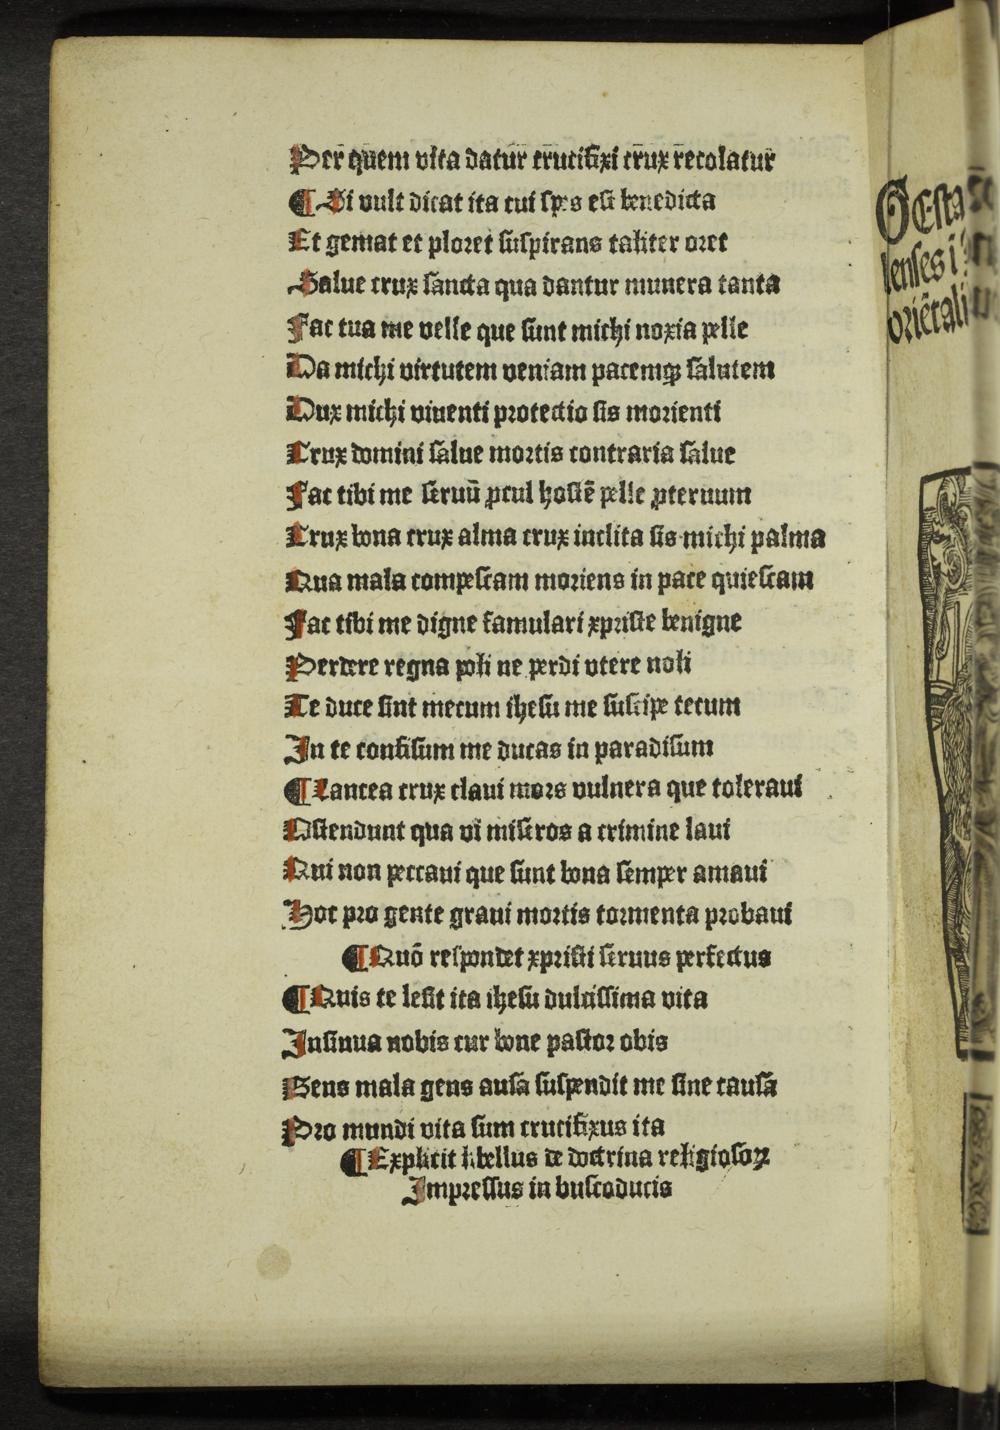 Per̄ qūem vita datur crucifixi cr̄ux r̄ecolatur̄
¶ Si vult dicat ita cui spes est benedicta
Et gemat et ploret suspirans taliter oret
Salue crux sancta qua dantur munera tanta
Fac tua me velle que sunt michi noxia pelle
Da michi virtutem veniam pacemqꝫ salutem
Dux michi viuenti protectio sis morienti
Crux domini salue mortis contraria salue
Fac tibi me seruū ꝓcul hostē pelle ꝓteruum
Crux bona crux alma crux inclita sis michi palma
Qua mala compescam moriens in pace quiescam
Fac tibi me digne famulari xpriste benigne
Perdere regna poli ne perdi vtere noli
Te duce sint mecum ihesu me suscipe tecum
In te confisum me ducas in paradisum
¶ Lancea crux claui mors vulnera que toleraui
Ostendunt qua vi miseros a crimine laui
Qui non peccaui que sunt bona semper amaui
Hoc pro gente graui mortis tormenta probaui
¶ Quō respondet xpristi seruus perfectus
¶ Quis te lesit ita ihesu dulcissima vita
Insinua nobis cur bone pastor obis
Gens mala gens ausa suspendit me sine causa
Pro mundi vita sum crucifixus ita
¶ Explicit libellus de doctrina religiosoꝝ
Impressus in buscoducis
GEsta
lenses ī
oriētali